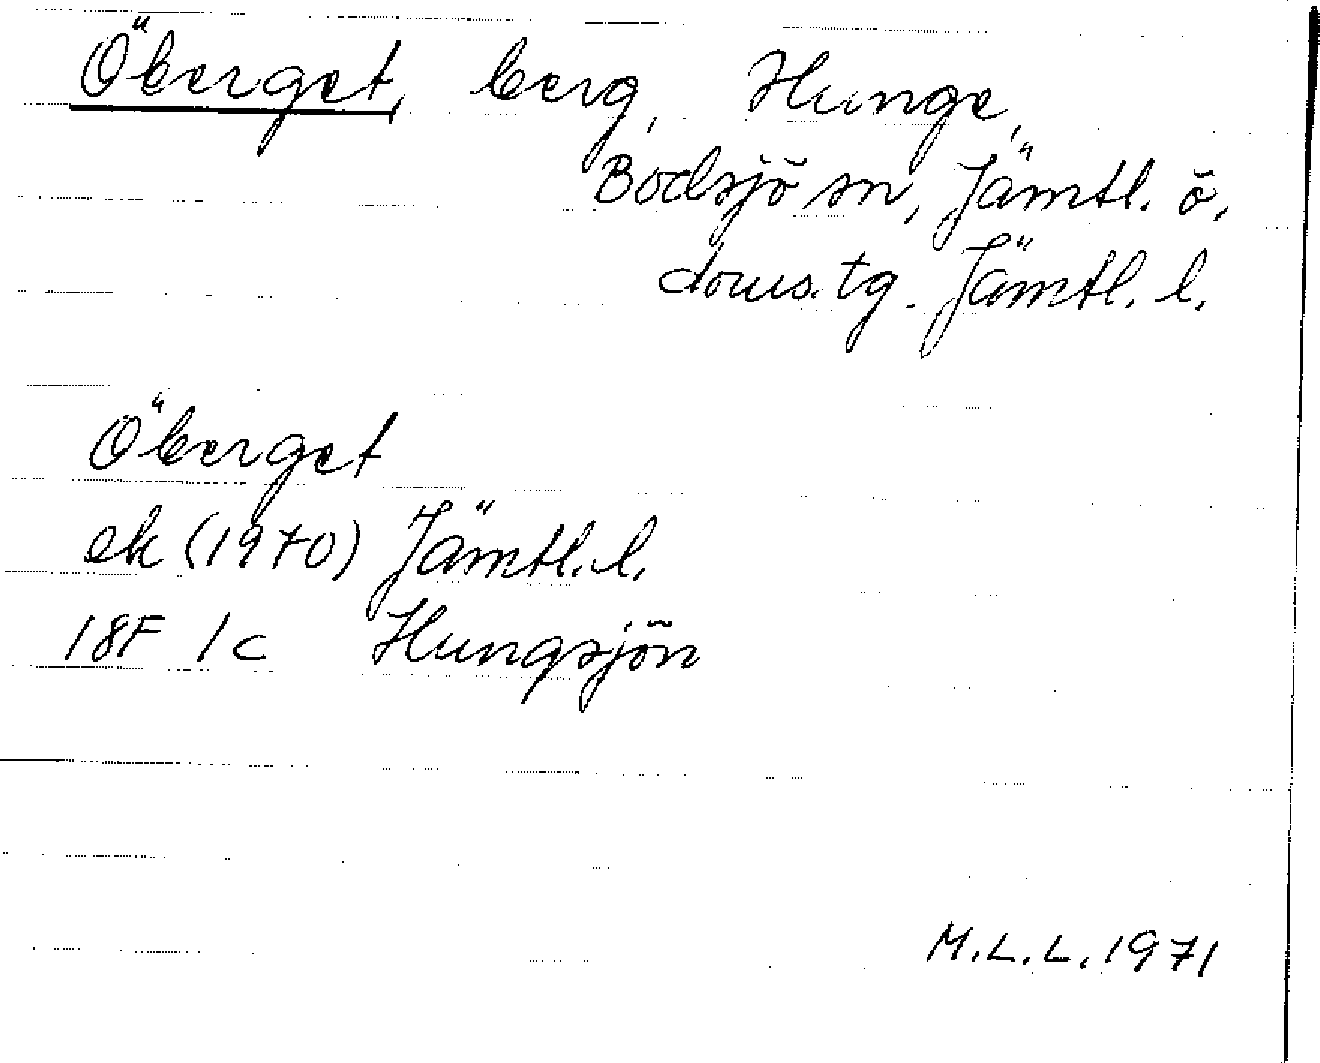 Öberget, berg, Hunge,
Bodsjö sn, Jämtl. ö.
doms.tg. Jämtl. l.
Öberget
ek (1970) Jämtl. l.
18F 1c Hungsjön
M.L.L. 1971